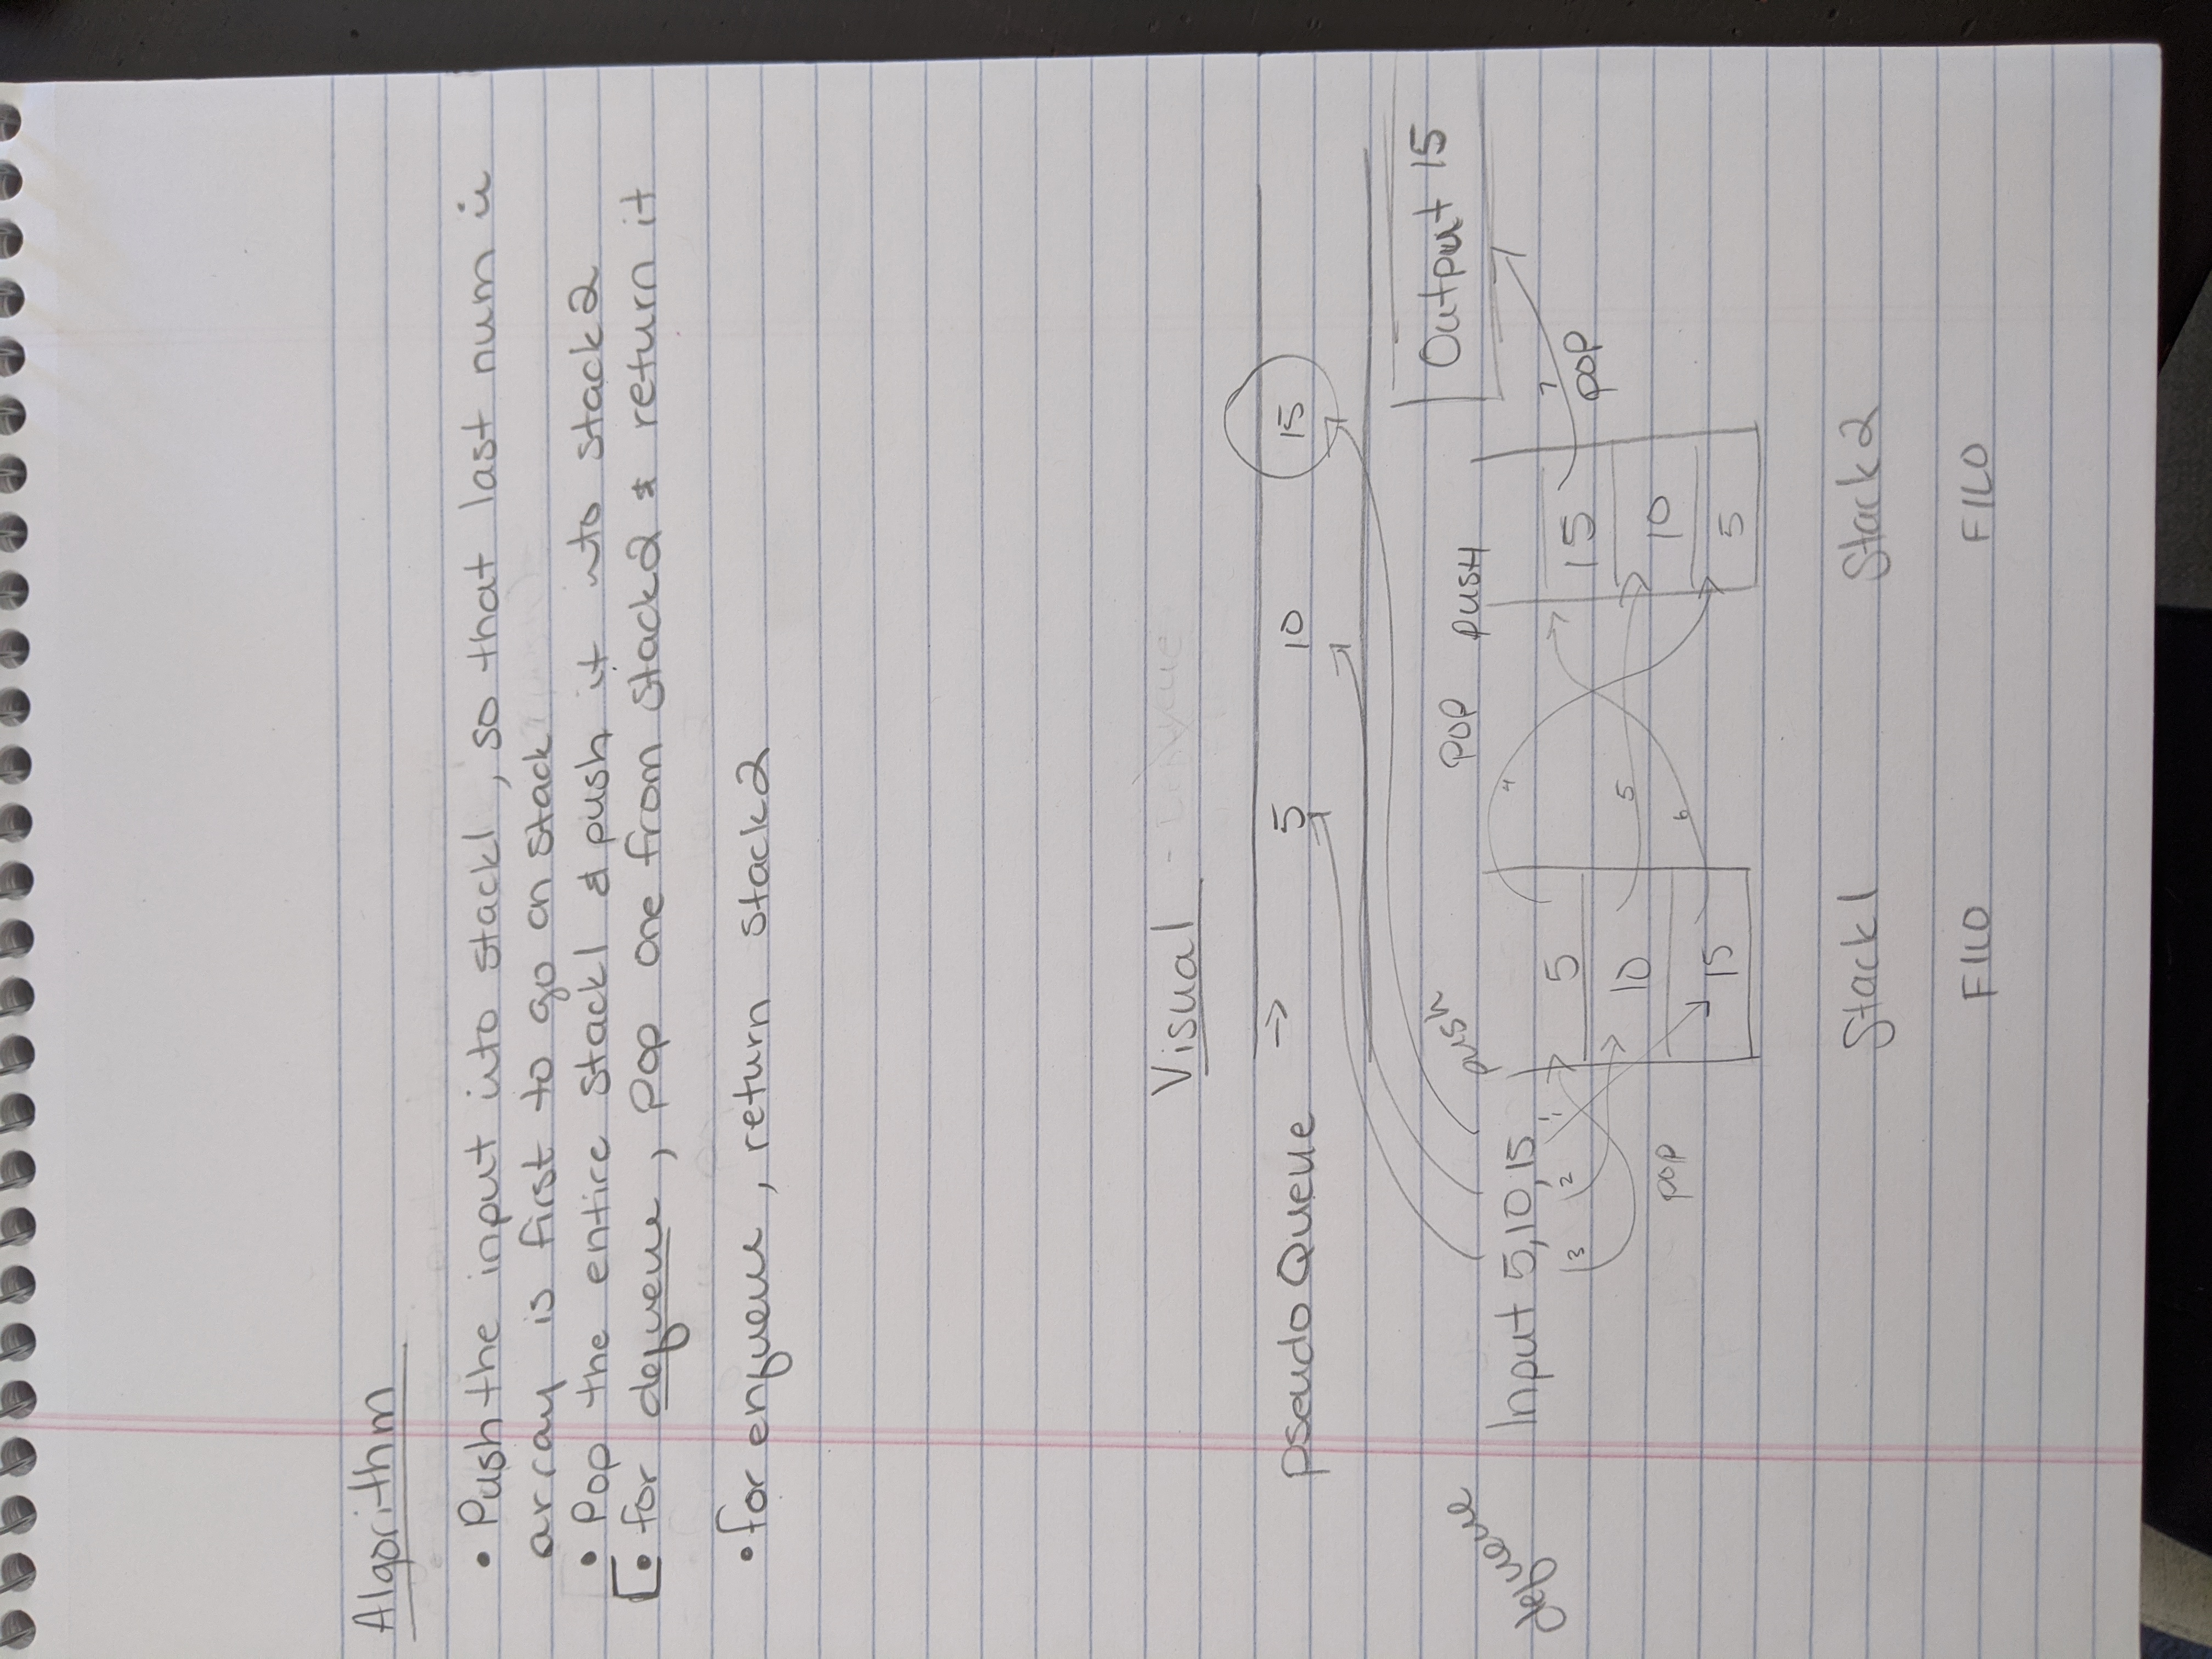 Algorithm
• Push the input into stack1, so that last num in
array is first to go on stack
• Pop the entire stack1 & push it into stack2
[• for dequeue, pop one from stack2 & return it
• for enqueue, return stack2
Visual
pseudo Queue → 5 10 15
Output 15
dequeue
push
pop push
Input 5,10,15
1 2 3
4
5
6
7
pop
pop
5
10
15
15
10
5
Stack1 Stack2
FILO FILO